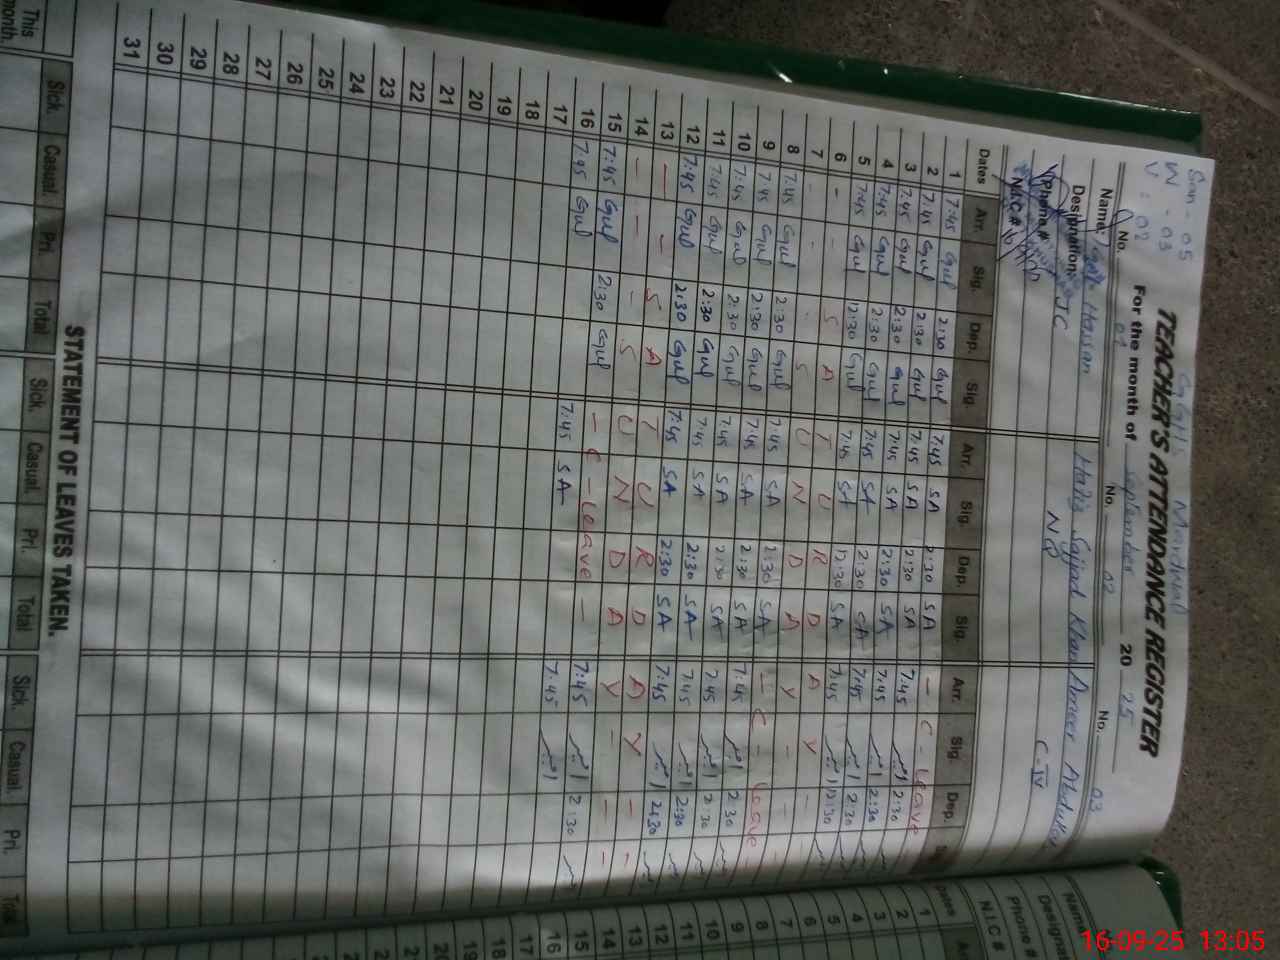 Bian - 05
W - 03
V : 02
GGHS Mardwal
TEACHER'S ATTENDANCE REGISTER
For the month of September 20 25
No. 01 No. 02 No. 03
Name: Gul Hassan Hafiz Sajjad Khan Ameer Abdullah
Designation: JC NQ C-IV
Phone #
N.I.C #
Dates Arr. Sig. Dep. Sig. Arr. Sig. Dep. Sig. Arr. Sig. Dep.
1 7:45 Gul 2:30 Gul 7:45 SA 2:30 SA - C - Leave
2 7:45 Gul 2:30 Gul 7:45 SA 2:30 SA 7:45 2:30
3 7:45 Gul 2:30 Gul 7:45 SA 2:30 SA 7:45 2:30
4 7:45 Gul 2:30 Gul 7:45 SA 2:30 SA 7:45 2:30
5 7:45 Gul 12:30 Gul 7:45 SA 12:30 SA 7:45 12:30
6 - - S A T U R D A Y - -
7 - - - S U N D A Y - - -
8 7:45 Gul 2:30 Gul 7:45 SA 2:30 SA - C - Leave -
9 7:45 Gul 2:30 Gul 7:45 SA 2:30 SA 7:45 2:30
10 7:45 Gul 2:30 Gul 7:45 SA 2:30 SA 7:45 2:30
11 7:45 Gul 2:30 Gul 7:45 SA 2:30 SA 7:45 2:30
12 7:45 Gul 2:30 Gul 7:45 SA 2:30 SA 7:45 2:30
13 - - S A T U R D A Y - -
14 - - - S U N D A Y - - -
15 7:45 Gul 2:30 Gul - C - Leave - 7:45 2:30
16 7:45 Gul 7:45 SA 7:45
17
18
19
20
21
22
23
24
25
26
27
28
29
30
31
STATEMENT OF LEAVES TAKEN.
This month. Sick. Casual. Pri. Total Sick. Casual. Pri. Total Sick. Casual. Pri.
Name
Designat
Phone #
N.I.C #
Dates
1
2
3
4
5
6
7
8
9
10
11
12
13
14
15
16
17
18
19
16-09-25 13:05